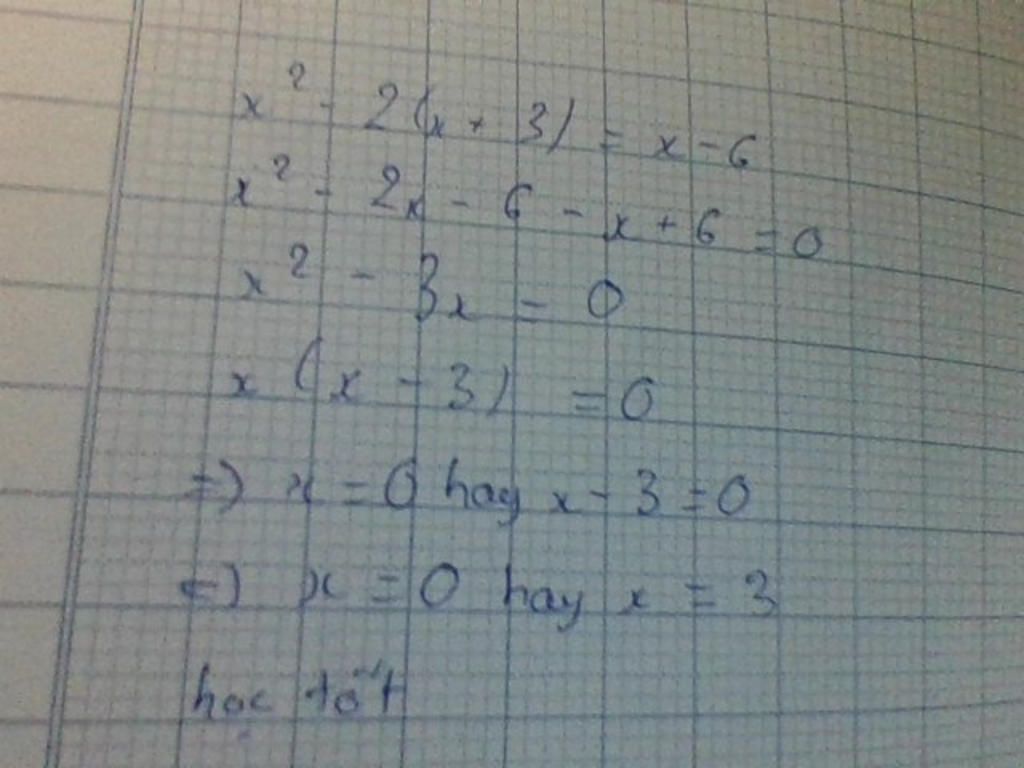 x² - 2(x + 3) = x - 6
x² - 2x - 6 - x + 6 = 0
x² - 3x = 0
x (x - 3) = 0
=) x = 0 hay x - 3 = 0
=) x = 0 hay x = 3
học tốt